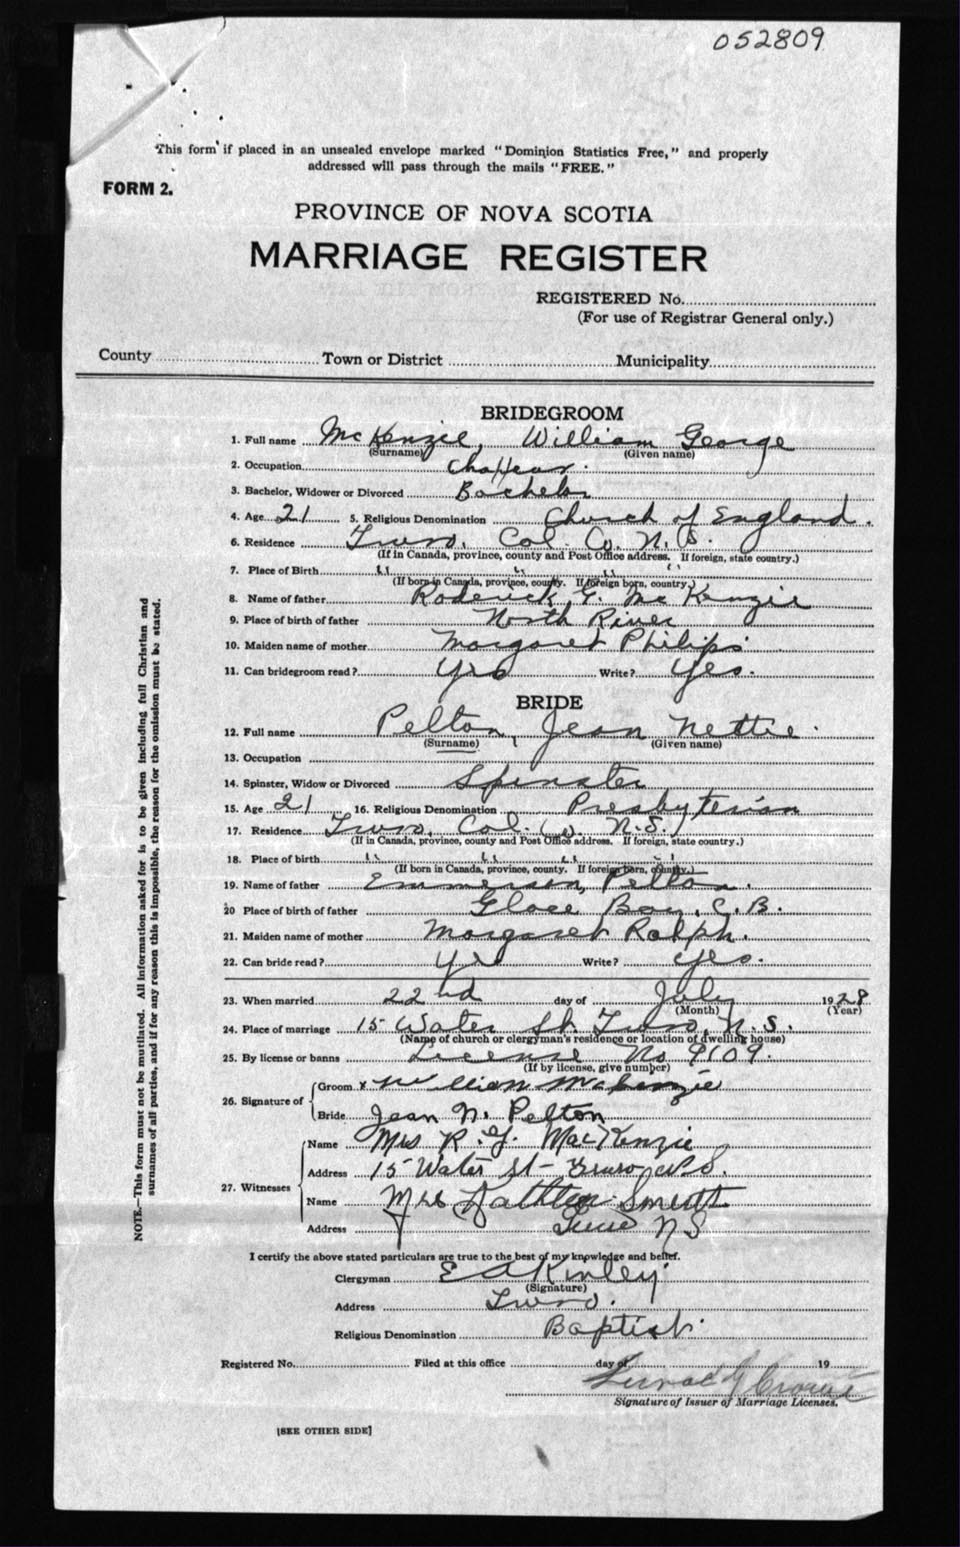 052809
This form if placed in an unsealed envelope marked "Dominion Statistics Free," and properly
addressed will pass through the mails "FREE."
FORM 2.
PROVINCE OF NOVA SCOTIA
MARRIAGE REGISTER
REGISTERED No.
(For use of Registrar General only.)
County Town or District Municipality
BRIDEGROOM
1. Full name McKenzie, William George
(Surname) (Given name)
2. Occupation Chaffeur.
3. Bachelor, Widower or Divorced Bachelor
4. Age 21 5. Religious Denomination Church of England.
6. Residence Truro, Col. Co. N. S.
(If in Canada, province, county and Post Office address. If foreign, state country.)
7. Place of Birth " " " "
(If born in Canada, province, county. If foreign born, country.)
8. Name of father Roderick G. McKenzie
9. Place of birth of father North River
10. Maiden name of mother Margaret Philips
11. Can bridegroom read? Yes Write? Yes.
BRIDE
12. Full name Pelton, Jean Nettie.
(Surname) (Given name)
13. Occupation
14. Spinster, Widow or Divorced Spinster
15. Age 21 16. Religious Denomination Presbyterian
17. Residence Truro, Col. Co. N.S.
(If in Canada, province, county and Post Office address. If foreign, state country.)
18. Place of birth " " " "
(If born in Canada, province, county. If foreign born, country.)
19. Name of father Emmerson, Pelton.
20 Place of birth of father Glace Bay, C.B.
21. Maiden name of mother Margaret Ralph.
22. Can bride read? Yes Write? Yes.
23. When married 22nd day of July 1928
(Month) (Year)
24. Place of marriage 15 Water St. Truro, N.S.
(Name of church or clergyman's residence or location of dwelling house)
25. By license or banns License No 9109.
(If by license, give number)
26. Signature of Groom x William McKenzie
Bride Jean N. Pelton
27. Witnesses Name Mrs R. G. MacKenzie
Address 15 Water St - Truro N.S.
Name Mrs Kathleen
Address Truro N S
I certify the above stated particulars are true to the best of my knowledge and belief.
Clergyman E A Kinley
(Signature)
Address Truro.
Religious Denomination Baptist.
Registered No. Filed at this office day of 19
Signature of Issuer of Marriage Licenses.
[SEE OTHER SIDE]
NOTE.—This form must not be mutilated. All information asked for is to be given including full Christian and
surnames of all parties, and if for any reason this is impossible, the reason for the omission must be stated.